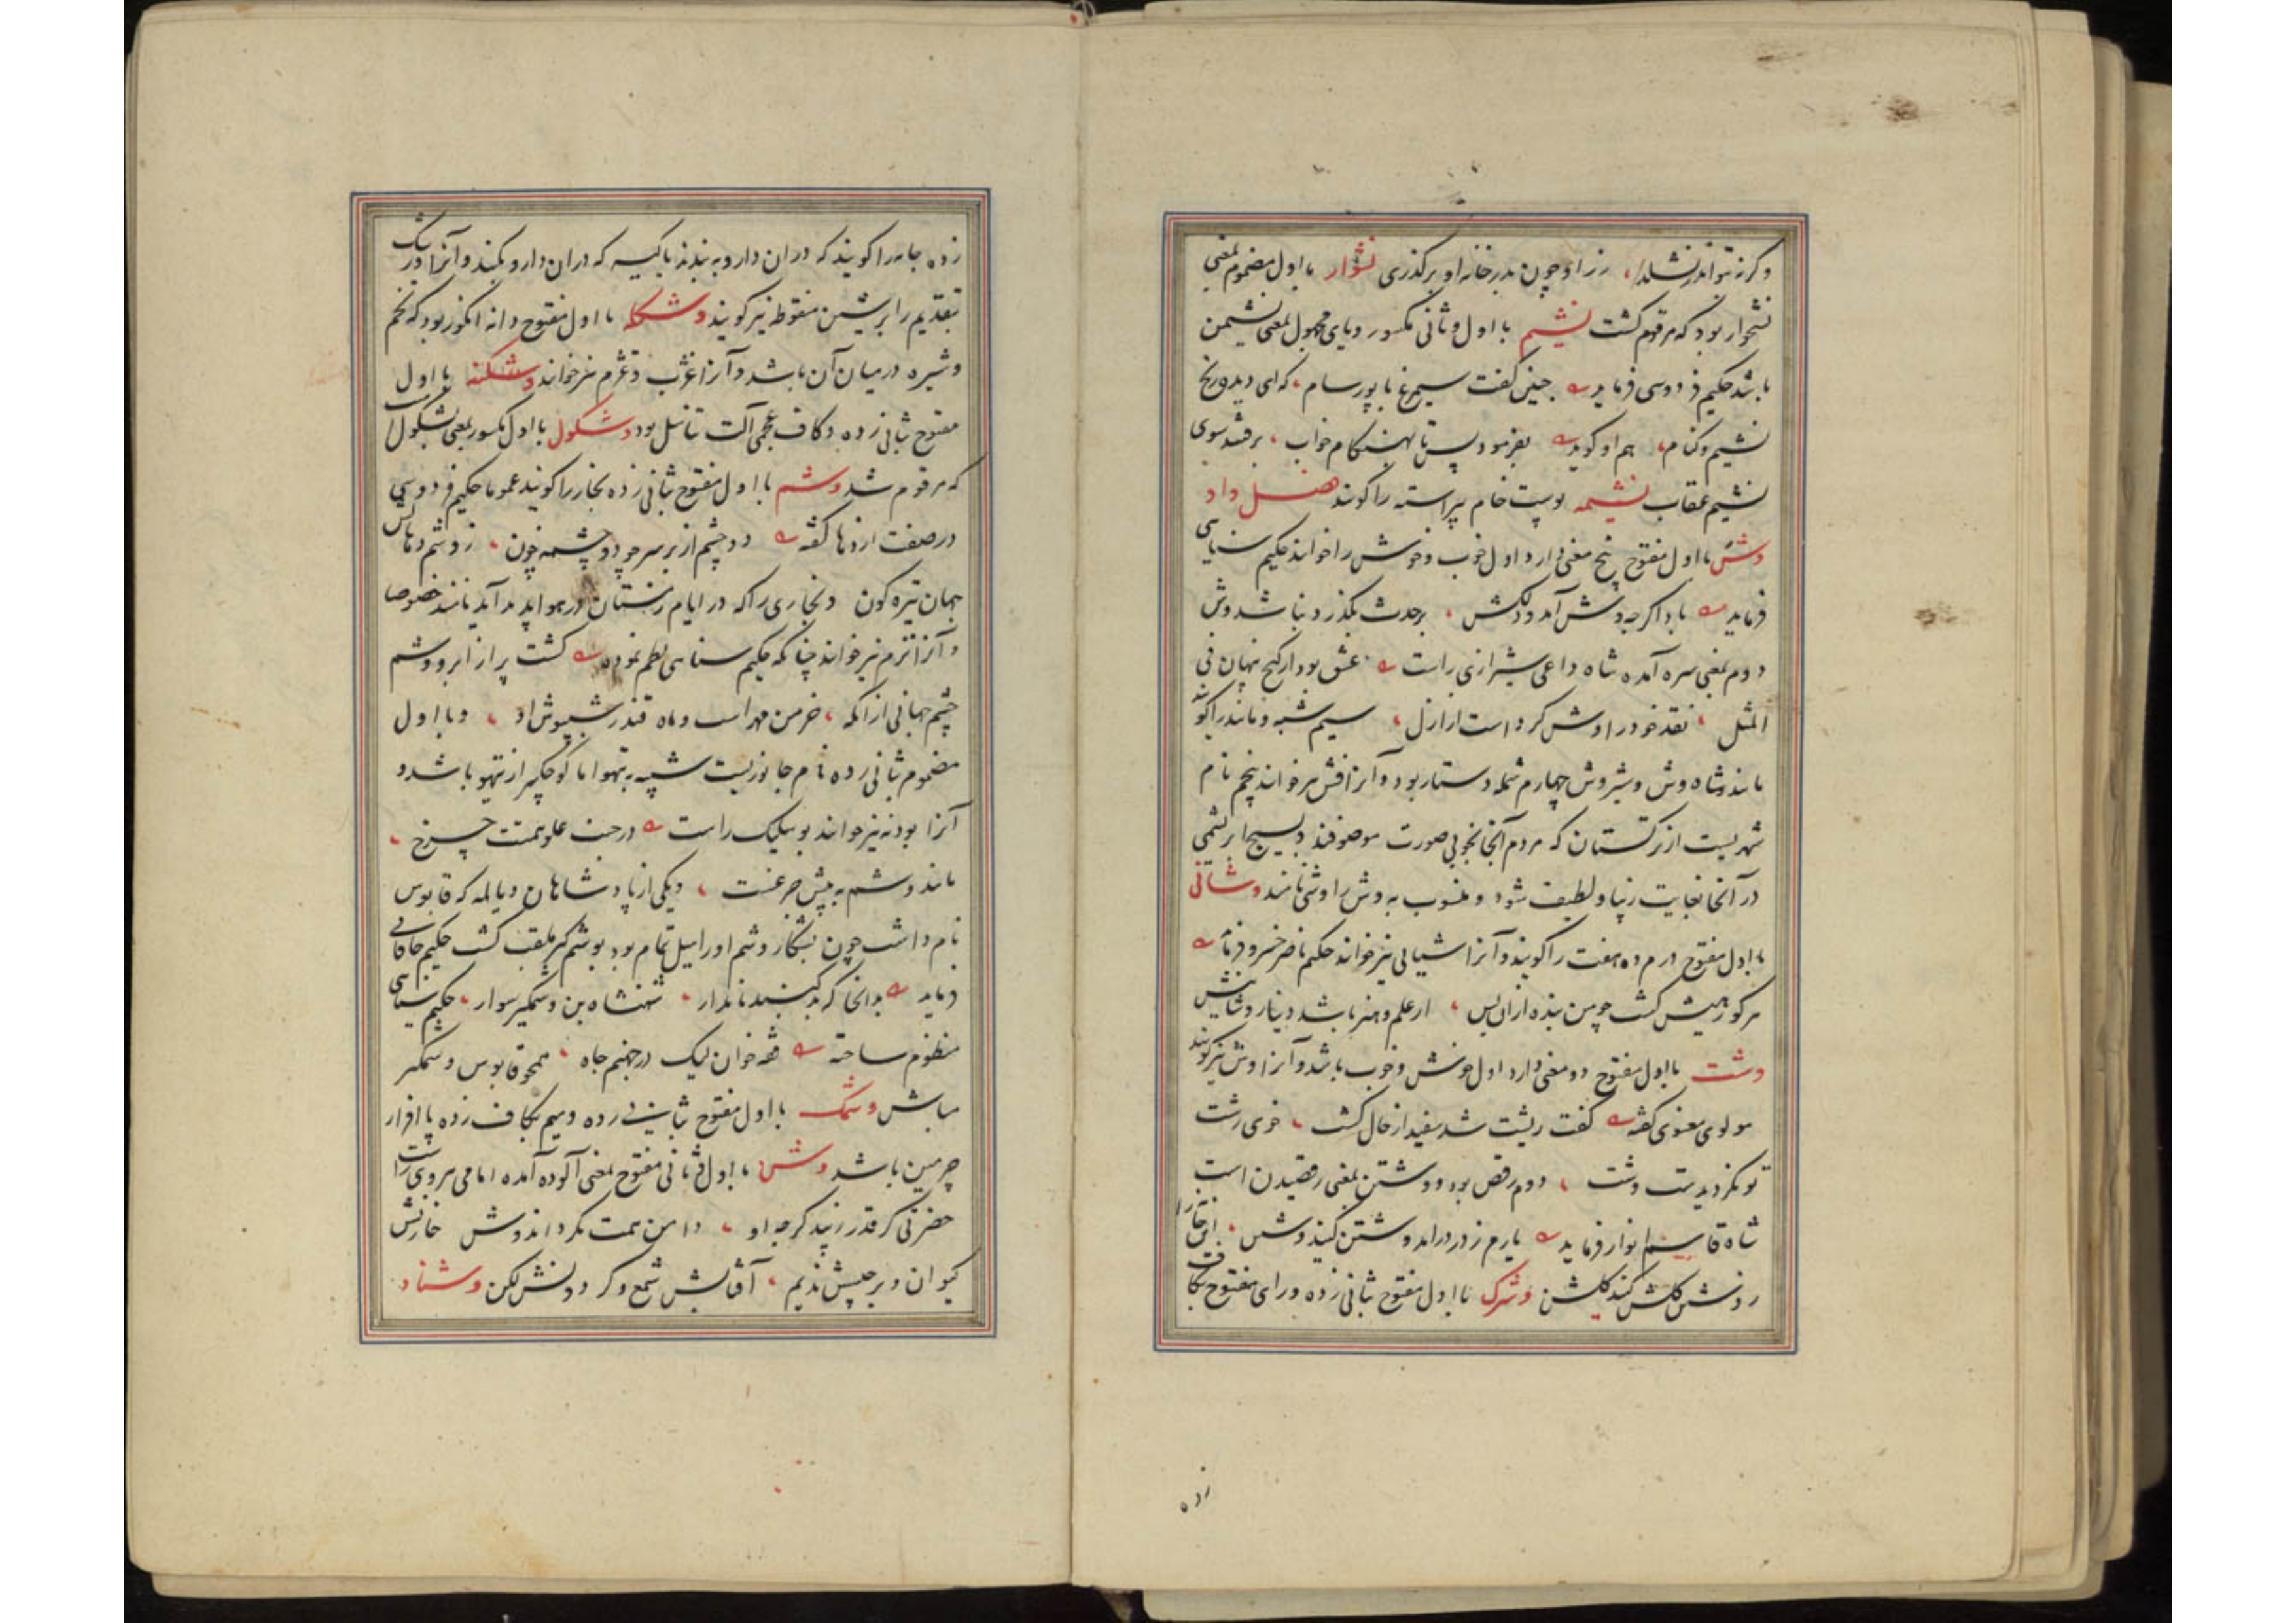 نشوار بااول مضموم بمعنی
نشخوار بود که مرقوم گشت نشیم بااول و ثانی مکسور و یای مجهول بمعنی نشیمن
باشد حکیم فردوسی فرماید چنین گفت سیمرغ با پور سام که ای دیده رنج
نشیم و کنام هم او گوید بفرمود پس تا بهنگام خواب برفتند سوی
نشیم عقاب نشیمه پوست خام پیراسته را گویند فصل واو
وش بااول مفتوح پنج معنی دارد اول خوب و خوش را خوانند حکیم سنایی
فرماید باد اکرچه وش آمد و دلکش برحدث بگذرد نباشد وش
دوم بمعنی سره آمده شاه داعی شیرازی راست عشق بود ار گنج نهان فی
المثل نقد خود را وش کرد است از ازل سیم شبه و مانند را گویند
مانند شاه وش و شیروش چهارم شمله دستار بود و آنرا فش نیز خوانند پنجم نام
شهریست از ترکستان که مردم آنجا بخوبی صورت موصوفند و نسیج ابریشمی
در آنجا بغایت زیبا و لطیف شود و منسوب به وش را وشی نامند وشانی
بااول مفتوح درم ده هفت را گویند و آنرا شیانی نیز خوانند حکیم ناصر خسرو فرماید
هرکو رهیش گشت چو من بنده ازان پس از علم و هنر باشد دینار و شیانیش
وشت بااول مفتوح دو معنی دارد اول خوش و خوب باشد و آنرا وش نیز گویند
مولوی معنوی گفته گفت ریشت شد سفید از حال گشت خوی زشت
تو نکردیدست وشت دوم رقص بود و وشتن بمعنی رقصیدن است
شاه قاسم انوار فرماید یارم ز در درامد وشتن کنید وشتن این خانه را
ز رویش گلشن کنید گلشن وشرک بااول مفتوح بثانی زده و رای مفتوح بکاف
زده
زده جامه را گویند که دران دارو به بندند یا کیسه که دران دارو کنند و آنرا ورشک
بتقدیم را بر شین منقوطه نیز گویند وشکله بااول مفتوح دانه انگور بود که تخم
و شیره در میان آن باشد و آنرا غژب و غژم نیز خوانند وشکنه بااول
مفتوح بثانی زده و کاف عجمی آلت تناسل بود وشکول بااول مکسور بمعنی بشکول است
که مرقوم شد وشم بااول مفتوح بثانی زده بخار را گویند عموما حکیم فردوسی
در صفت اژدها گفته دو چشم از بر سر چو دو چشمه خون ز وشم دهانش
جهان تیره گون و بخاری را که در ایام زمستان در هوا پدید آید مانند خصوصا
و آنرا نژم نیز خوانند چنانکه حکیم سنایی نظم نموده گشت پر از ابر و وشم
چشم جهانی ازانکه خرمن مهر است و ماه قندز شب پوش او و با اول
مضموم بثانی زده نام جانوریست شبیه به تیهو اما کوچکتر از تیهو باشد و
آنرا بودنه نیز خوانند بوسلیک راست در جنب علو همتت چرخ
مانند وشم به پیش چرغست و یکی از پادشاهان دیالمه که قابوس
نام داشت چون بشکار وشم او را میل تمام بود بوشمگیر ملقب گشت حکیم خاقانی
فرماید بدانجا که بد گنبد نامدار شهنشاه بن وشمگیر سوار حکیم سنایی
منظوم ساخته قحه خوان لیک در جهنم جاه همچو قابوس وشمگیر
مباش وشمک بااول مفتوح بثانی زده و میم بکاف زده پا افزار
چرمین باشد وشن بااول و ثانی مفتوح بمعنی آلوده آمده امامی هروی راست
حضرتی کز قدر زیبد گرچه او دامن همت نکرداند وشن خازنش
کیوان و برجیسش ندیم آفتابش شمع و گردونش لگن وشناد